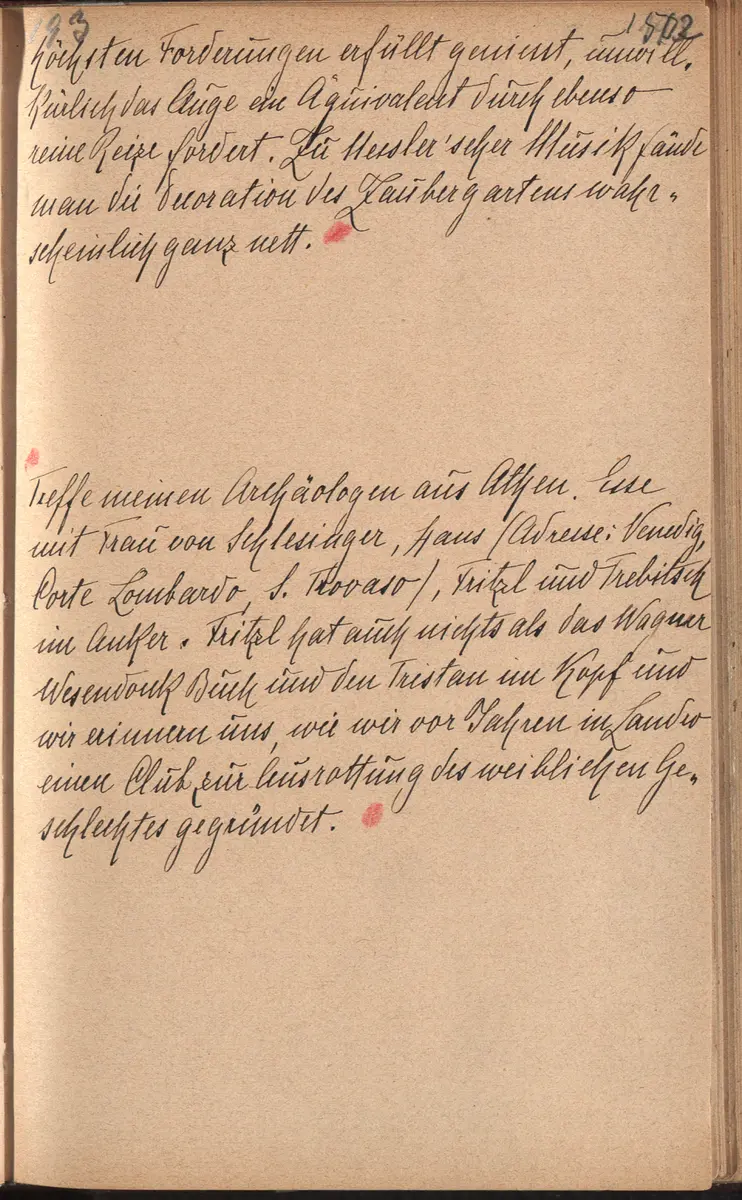 193 1502
höchsten Forderungen erfüllt geniesst, unwill,
kürlich das Auge ein Äquivalent durch ebenso
reine Reize fordert. Zu Messler'scher Musik fände
man die Decoration des Zaubergartens wahr„
scheinlich ganz nett.
Treffe meinen Archäologen aus Athen. Esse
mit Frau von Schlesinger, Hans (Adresse: Venedig,
Corte Lombardo, S. Trovaso), Fritzl und Trebitsch
im Anker. Fritzl hat auch nichts als das Wagner
Wesendonk Buch und den Tristan im Kopf und
wir erinnern uns, wie wir vor Jahren in Landro
einen Club zur Ausrottung des weiblichen Ge„
schlechtes gegründet.